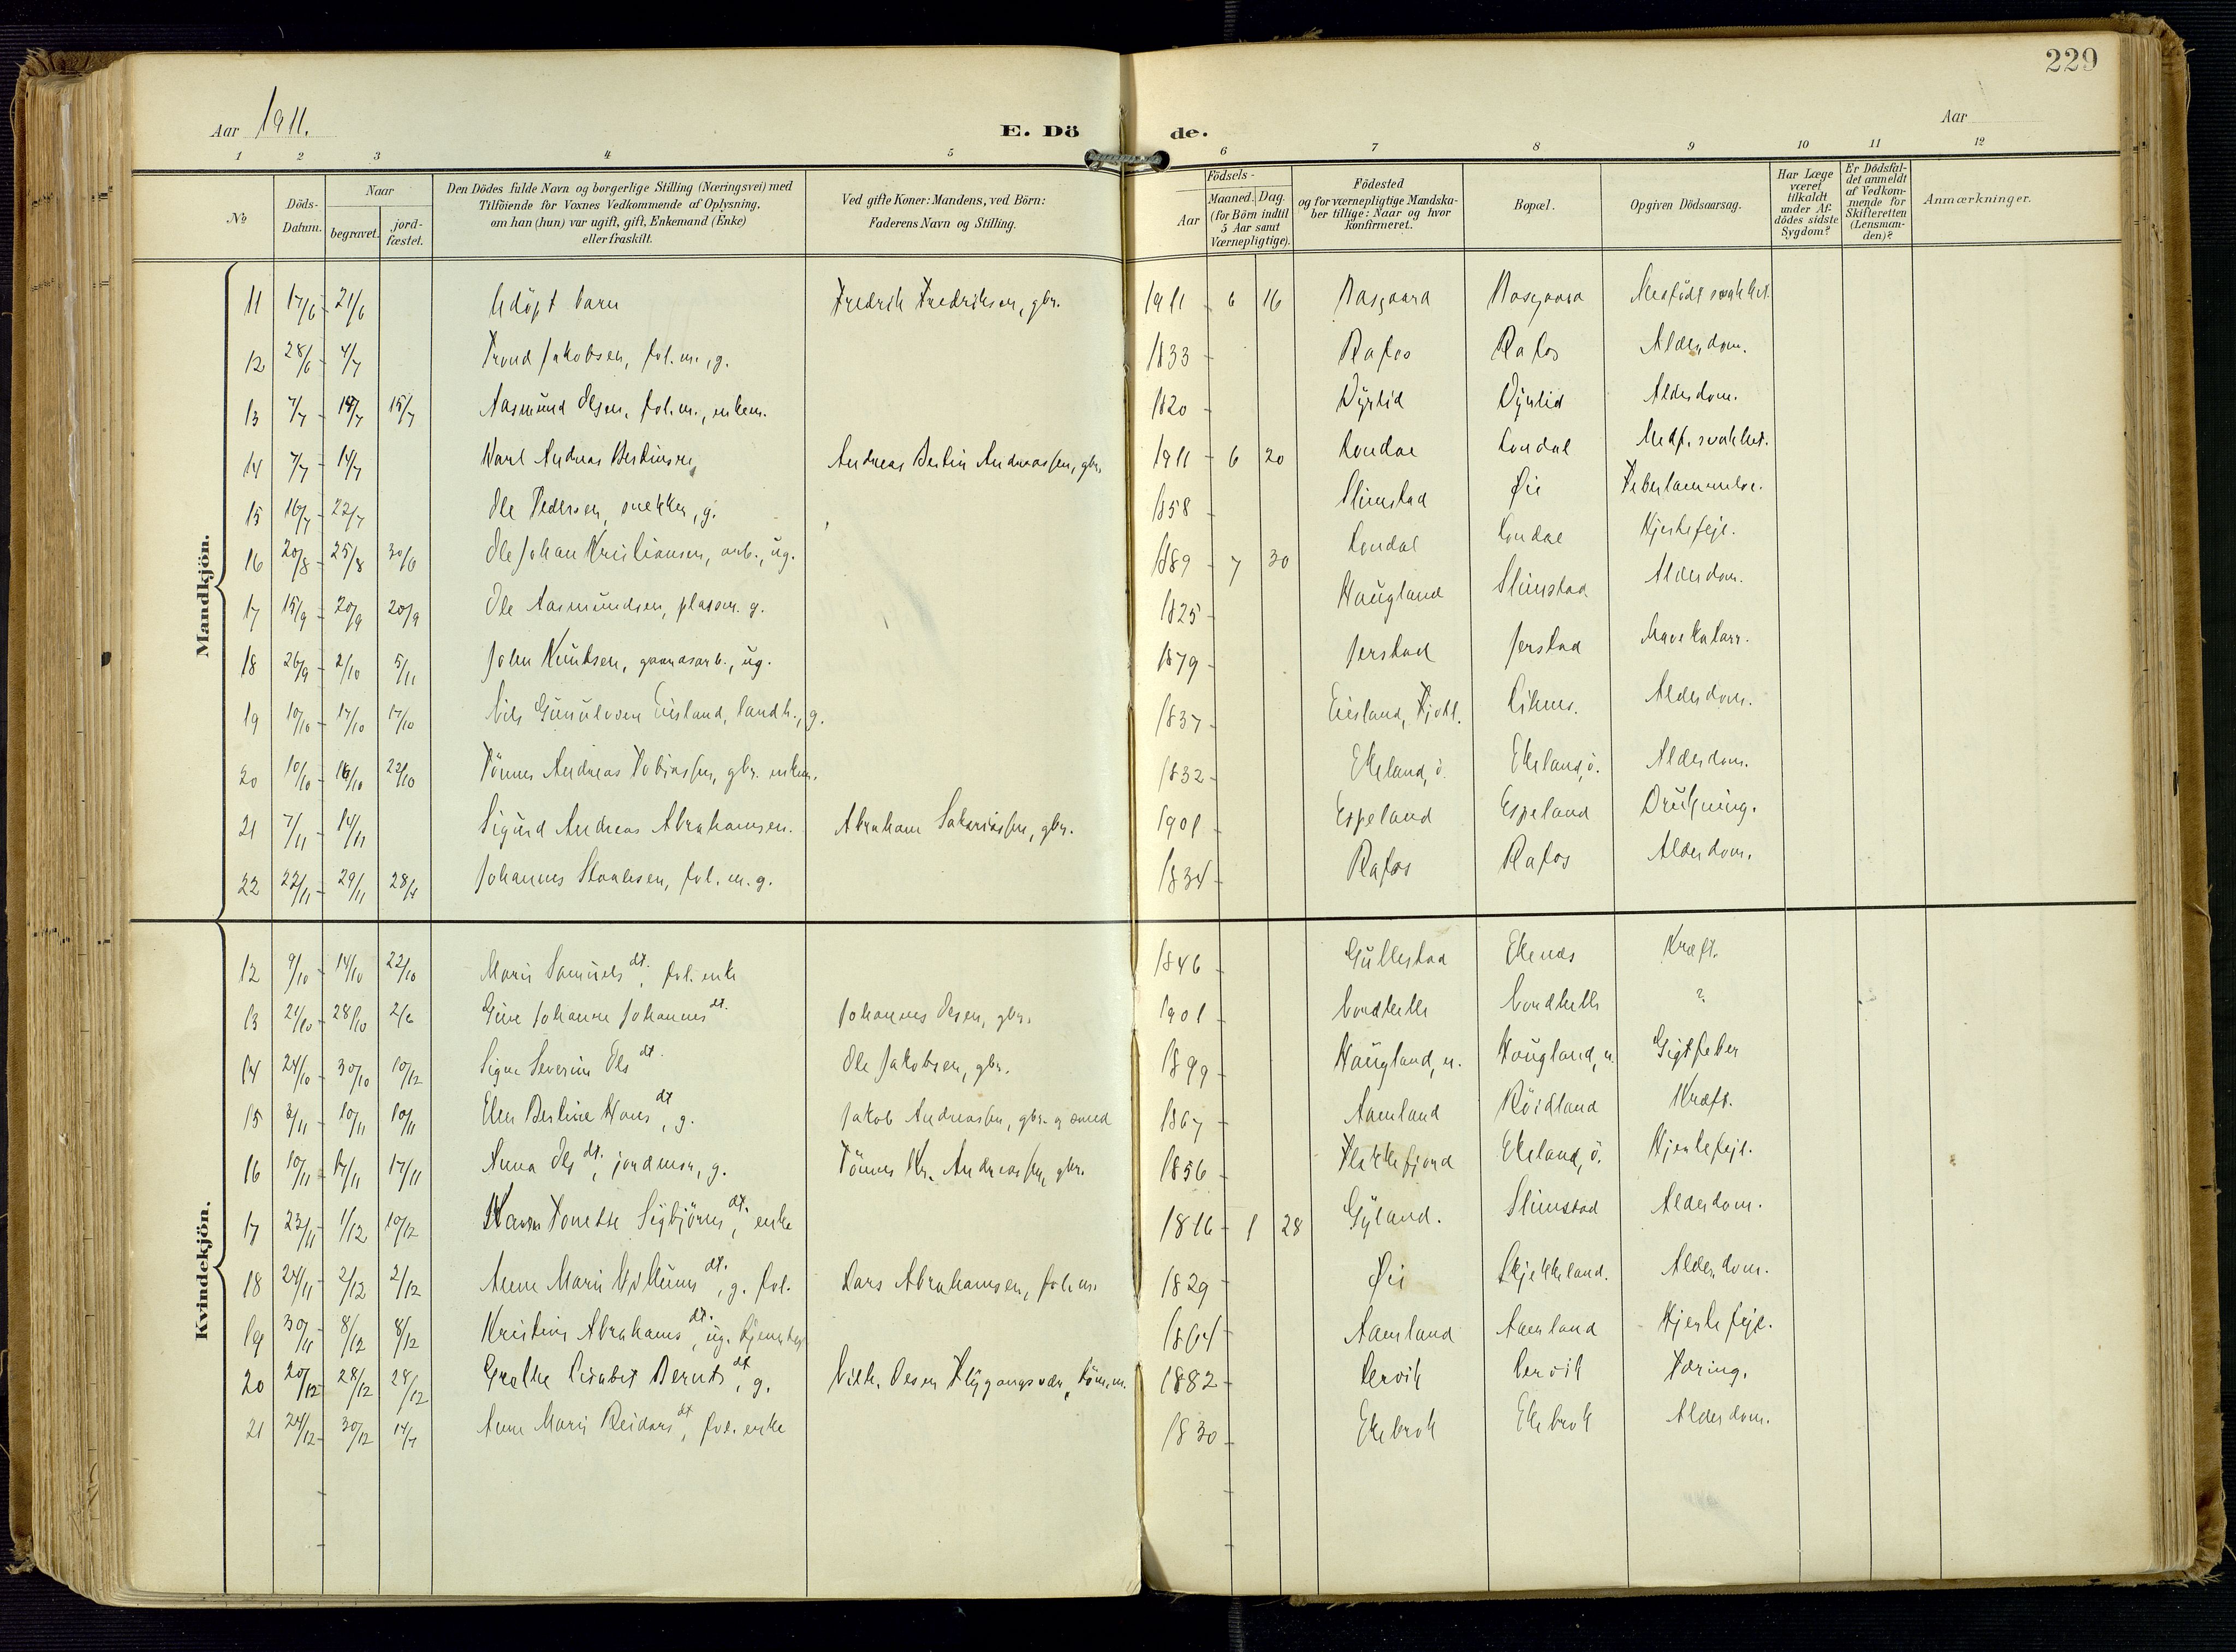 229
Aar 1911.
E. Dö de.
Aar
1 2 3 4 5 6 7 8 9 10 11 12
No
Döds-Datum.
Naar
begravet.
jord-fæstet.
Den Dödes fulde Navn og borgerlige Stilling (Næringsvei) med
Tilföiende for Voxnes Vedkommende af Oplysning,
om han (hun) var ugift, gift, Enkemand (Enke)
eller fraskilt.
Ved gifte Koner: Mandens, ved Börn:
Faderens Navn og Stilling.
Födsels-
Aar
Maaned. Dag.
(for Börn indtil
5 Aar samt
Værnepligtige).
Födested
og for værnepligtige Mandska-
ber tillige: Naar og hvor
konfirmeret.
Bopæl.
Opgiven Dödsaarsag.
Har Læge
været
tilkaldt
under Af-
dödes sidste
Sygdom?
Er Dödsfal-
det anmeldt
af Vedkom-
mende for
Skifteretten
(Lensman-
den)?
Anmærkninger.
Mandkjön.
11 17/6 21/6 Udöpt barn Fredrik Fredriksen, gbr. 1911 6 16 Aasgaard Aasgaard Medfödt svakhet.
12 28/6 4/7 Trond Jakobsen, fol.m., g. 1833 Rafos Rafos Alderdom.
13 7/7 14/7 15/7 Aasmund Olsen, fol.m., enkem. 1820 Dyrlid Dyrlid Alderdom.
14 7/7 14/7 Karl Andreas Bertinsen Andreas Bertin Andreassen, gbr. 1911 6 20 Londal Londal Medf. svakhet.
15 16/7 22/7 Ole Pedersen, snekker, g. 1858 Slimstad Øie
16 20/8 25/8 Ole Johan Kristiansen, arb., ug. 1889 7 30 Londal Londal Hjertefejl.
17 15/9 20/9 20/9 Ole Aasmundsen, plassm. g. 1825 Haugland Slimstad Alderdom.
18 26/9 2/10 5/11 John Knutsen, gaardsarb., ug. 1879 Jerstad Jerstad Mavekatarr.
19 10/10 17/10 17/10 Nils Gunulvsen Eiesland, landh., g. 1837 Eiesland, Fjotl. Alderdom.
20 10/10 16/10 22/10 Tönnes Andreas Tobiassen, gbr. enkem. 1832 Ekeland, ö. Ekeland, ö. Alderdom.
21 7/11 14/11 Sigurd Andreas Abrahamsen. Abraham Sakariassen, gbr. 1901 Espeland Espeland Drukning.
22 22/11 29/11 Johannes Staalesen, fol.m. g. 1834 Rafos Rafos Alderdom.
Kvindekjön.
12 9/10 14/10 22/10 Marie Samuelsdt. fol. enke 1846 Gullestad Ekenes Kræft.
13 21/10 28/10 2/6 Gine Johanne Johannesdt. Johannes Olsen, gbr. 1901 ?
14 24/10 30/10 10/12 Signe Severine Olsdt. Ole Jakobsen, gbr. 1899 Haugland, n. Haugland, n. Gigtfeber
15 3/11 10/11 10/11 Elen Bertine Hansdt, g. Jakob Andreassen, gbr. og smed 1867 Aamland Röidland Kræft.
16 10/11 17/11 17/11 Anna Olsdt., jordmor, g. Tönnes Kr. Andreassen, gbr. 1856 Flekkefjord Ekeland, ö. Hjertefejl.
17 23/11 1/12 10/12 Karen Tonette Sigbjörnsdt., enke 1816 1 28 Gyland. Slimstad Alderdom.
18 24/11 2/12 2/12 Anne Marie Villumsdt., g. fol. Lars Abrahamsen, fol.m. 1829 Øie Skjekkeland. Alderdom.
19 30/11 8/12 8/12 Kristine Abrahamsdt., ug. 1864 Aamland Aamland Hjertefejl.
20 20/12 28/12 28/12 Grethe Lisabet Berntsdt, g. 1882 Lervik Lervik Tæring.
21 24/12 30/12 14/7 Anne Marie Reidarsdt, fol. enke 1830 Ekebrok Ekebrok Alderdom.